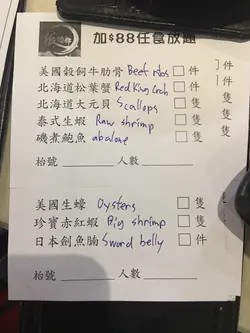 加$88任食放題
美國穀飼牛肋骨 Beef ribs □ 件
北海道松葉蟹 Red King Crab □ 件
北海道大元貝 Scallops □ 隻
泰式生蝦 Raw shrimp □ 隻
磯煮鮑魚 abalone □ 隻
枱號 人數
美國生蠔 Oysters □ 隻
珍寶赤紅蝦 Big shrimp □ 隻
日本劍魚腩 Sword belly □ 件
枱號 人數